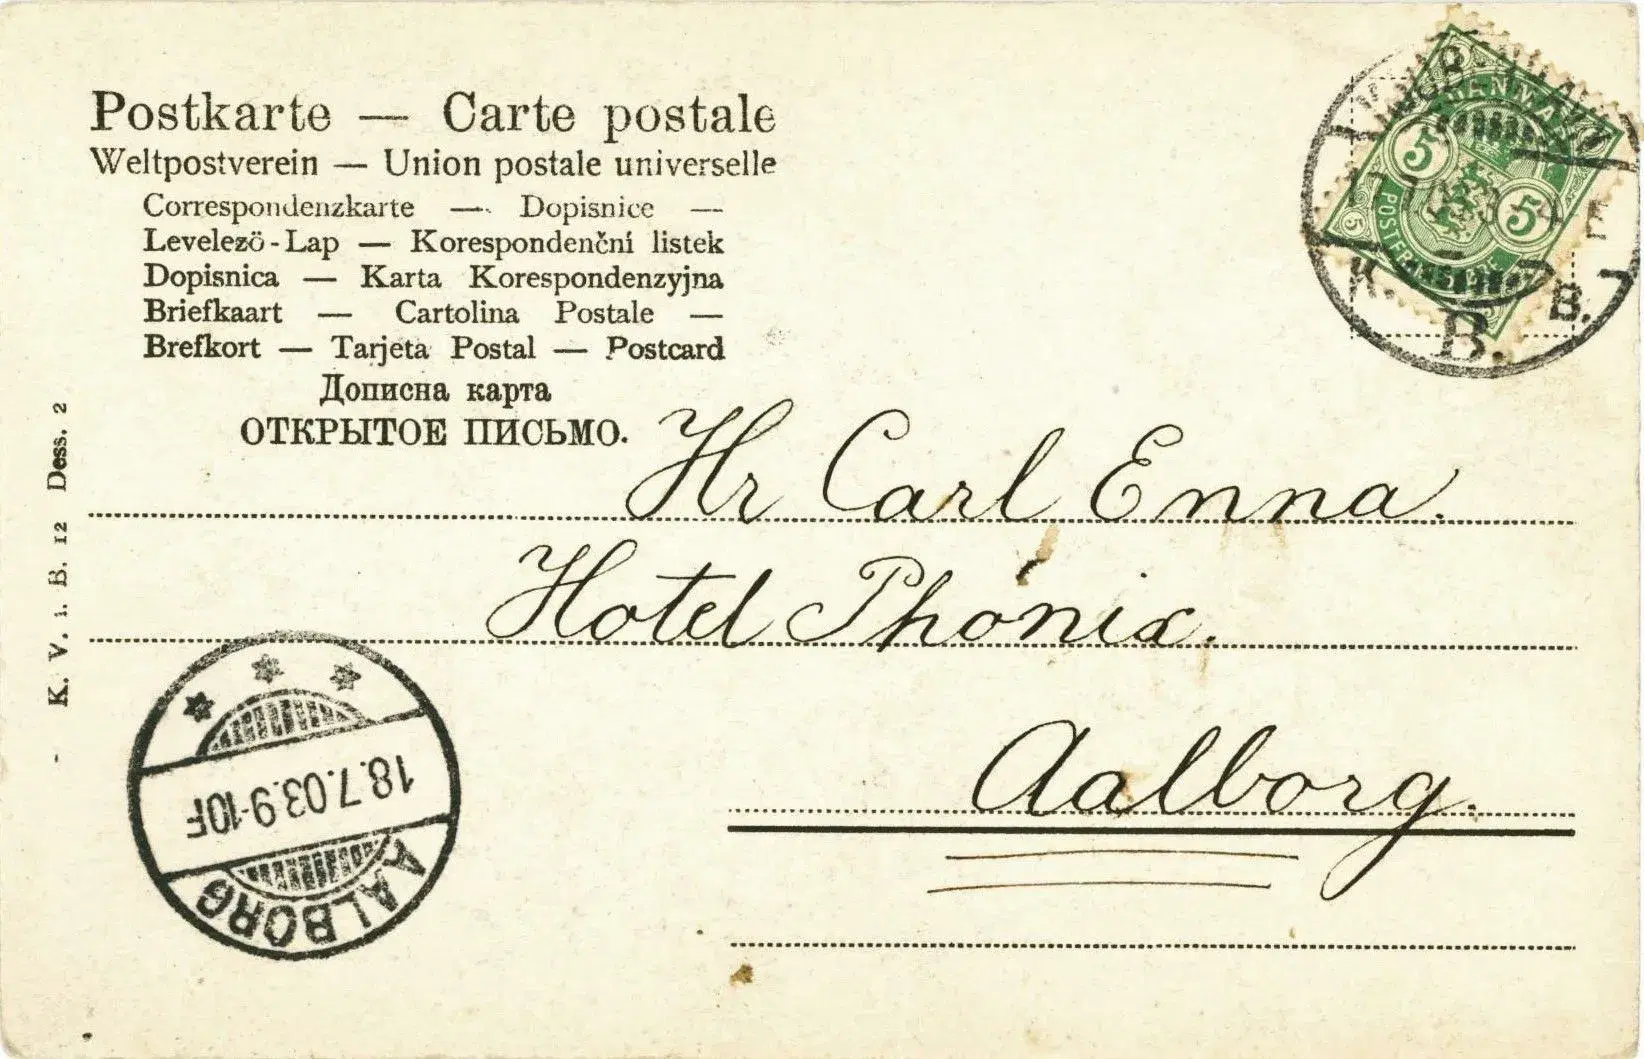 Postkarte — Carte postale
Weltpostverein — Union postale universelle
Correspondenzkarte — Dopisnice —
Levelező-Lap — Korespondenční listek
Dopisnica — Karta Korespondenzyjna
Briefkaart — Cartolina Postale —
Brefkort — Tarjeta Postal — Postcard
Дописна карта
ОТКРЫТОЕ ПИСЬМО.
DANMARK
5 5
POSTFRIM
K. B. B.
Hr Carl Enna.
Hotel Phönix.
Aalborg.
K. V. i. B. 12 Dess. 2
18.7.03.9-10F
AALBORG